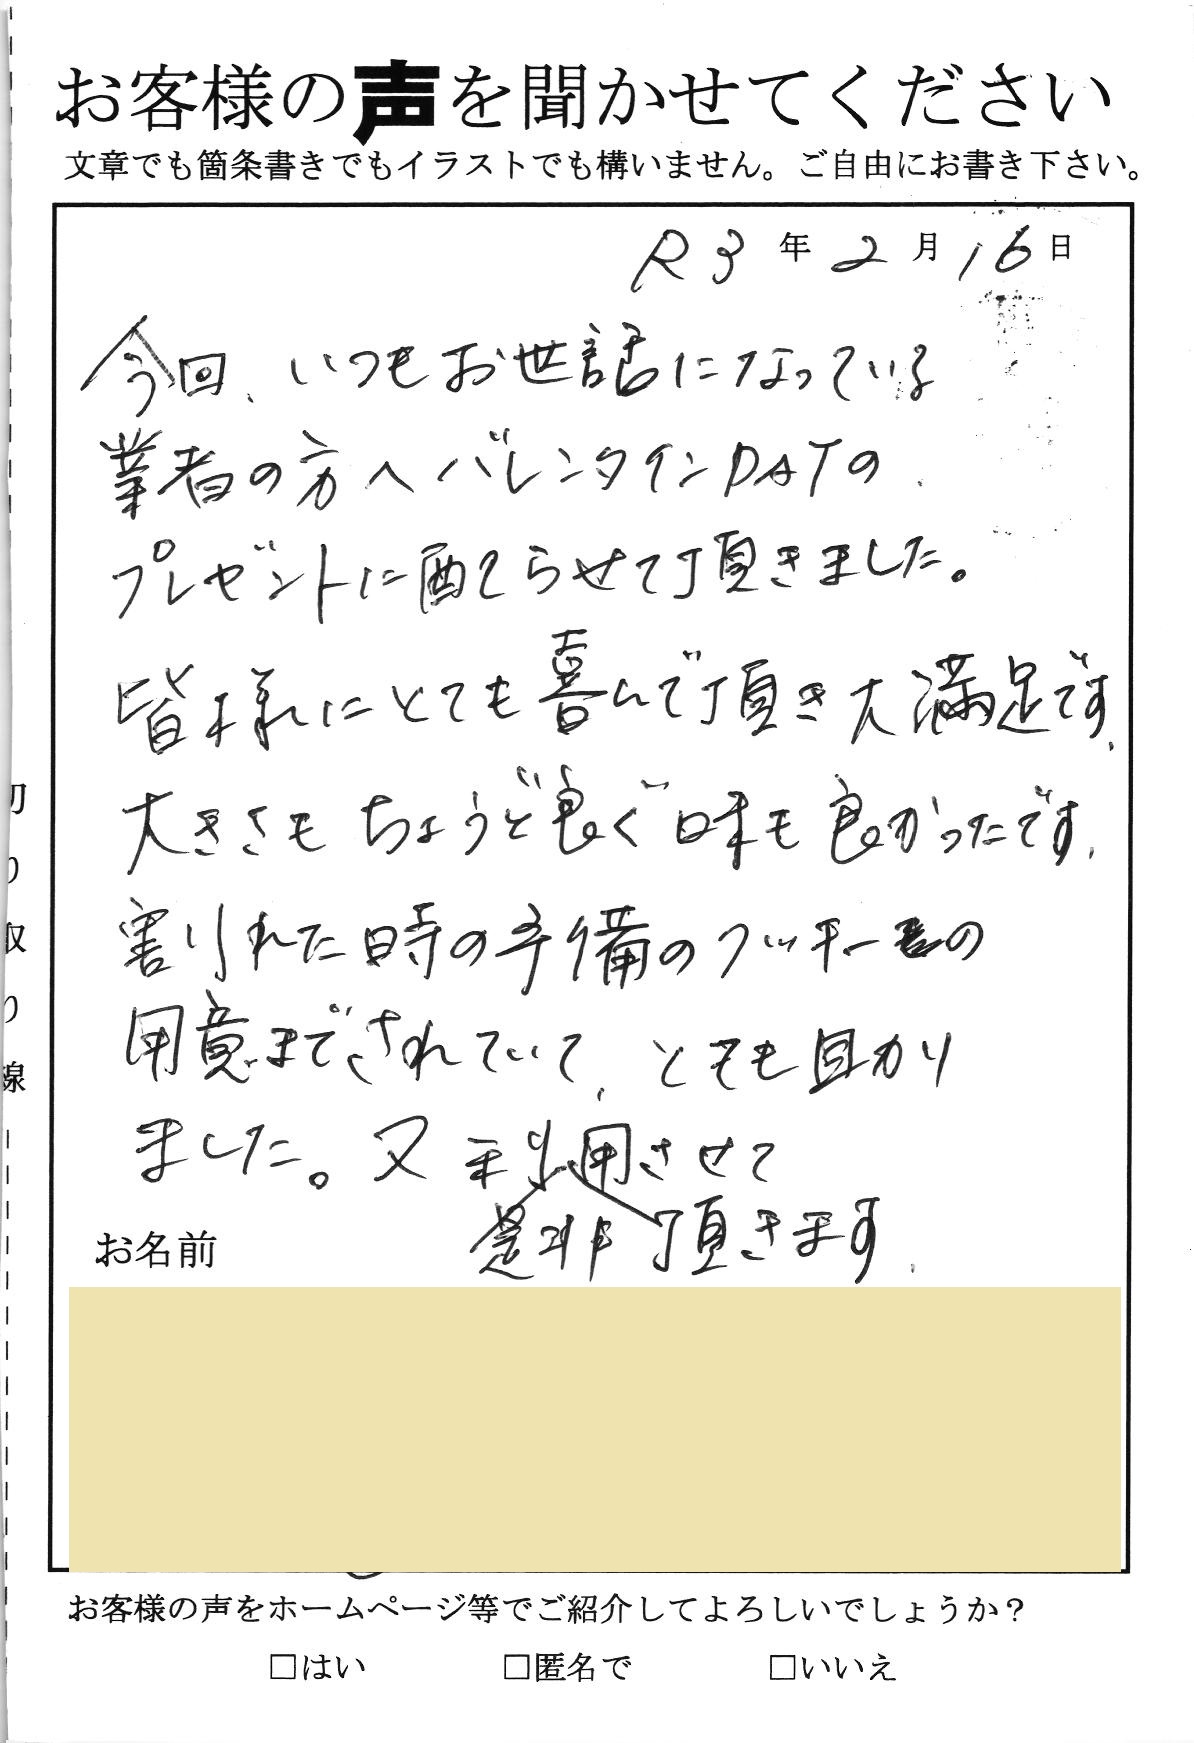 お客様の声を聞かせてください
文章でも箇条書きでもイラストでも構いません。ご自由にお書き下さい。
R3年2月16日
今回、いつもお世話になっている
業者の方へバレンタインDAYの
プレゼントに配らせて頂きました。
皆様にとても喜んで頂き大満足です。
大きさもちょうど良く味も良かったです。
割れた時の予備のクッキーの
用意までされていて、とても助かり
ました。又利用させて
是非頂きます。
お名前
切り取り線
お客様の声をホームページ等でご紹介してよろしいでしょうか？
□はい □匿名で □いいえ